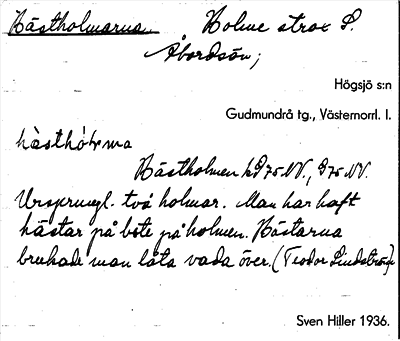 Hästholmarna. Holme strax S.
Åbordsön;
Högsjö s:n
Gudmundrå tg., Västernorrl. l.
hàsthól̥ma
Hästholmen kD75NV., D75NV.
Ursprungl. två holmar. Man har haft
hästar på bete på holmen. Hästarna
brukade man låta vada över. (Teodor Lindström)
Sven Hiller 1936.